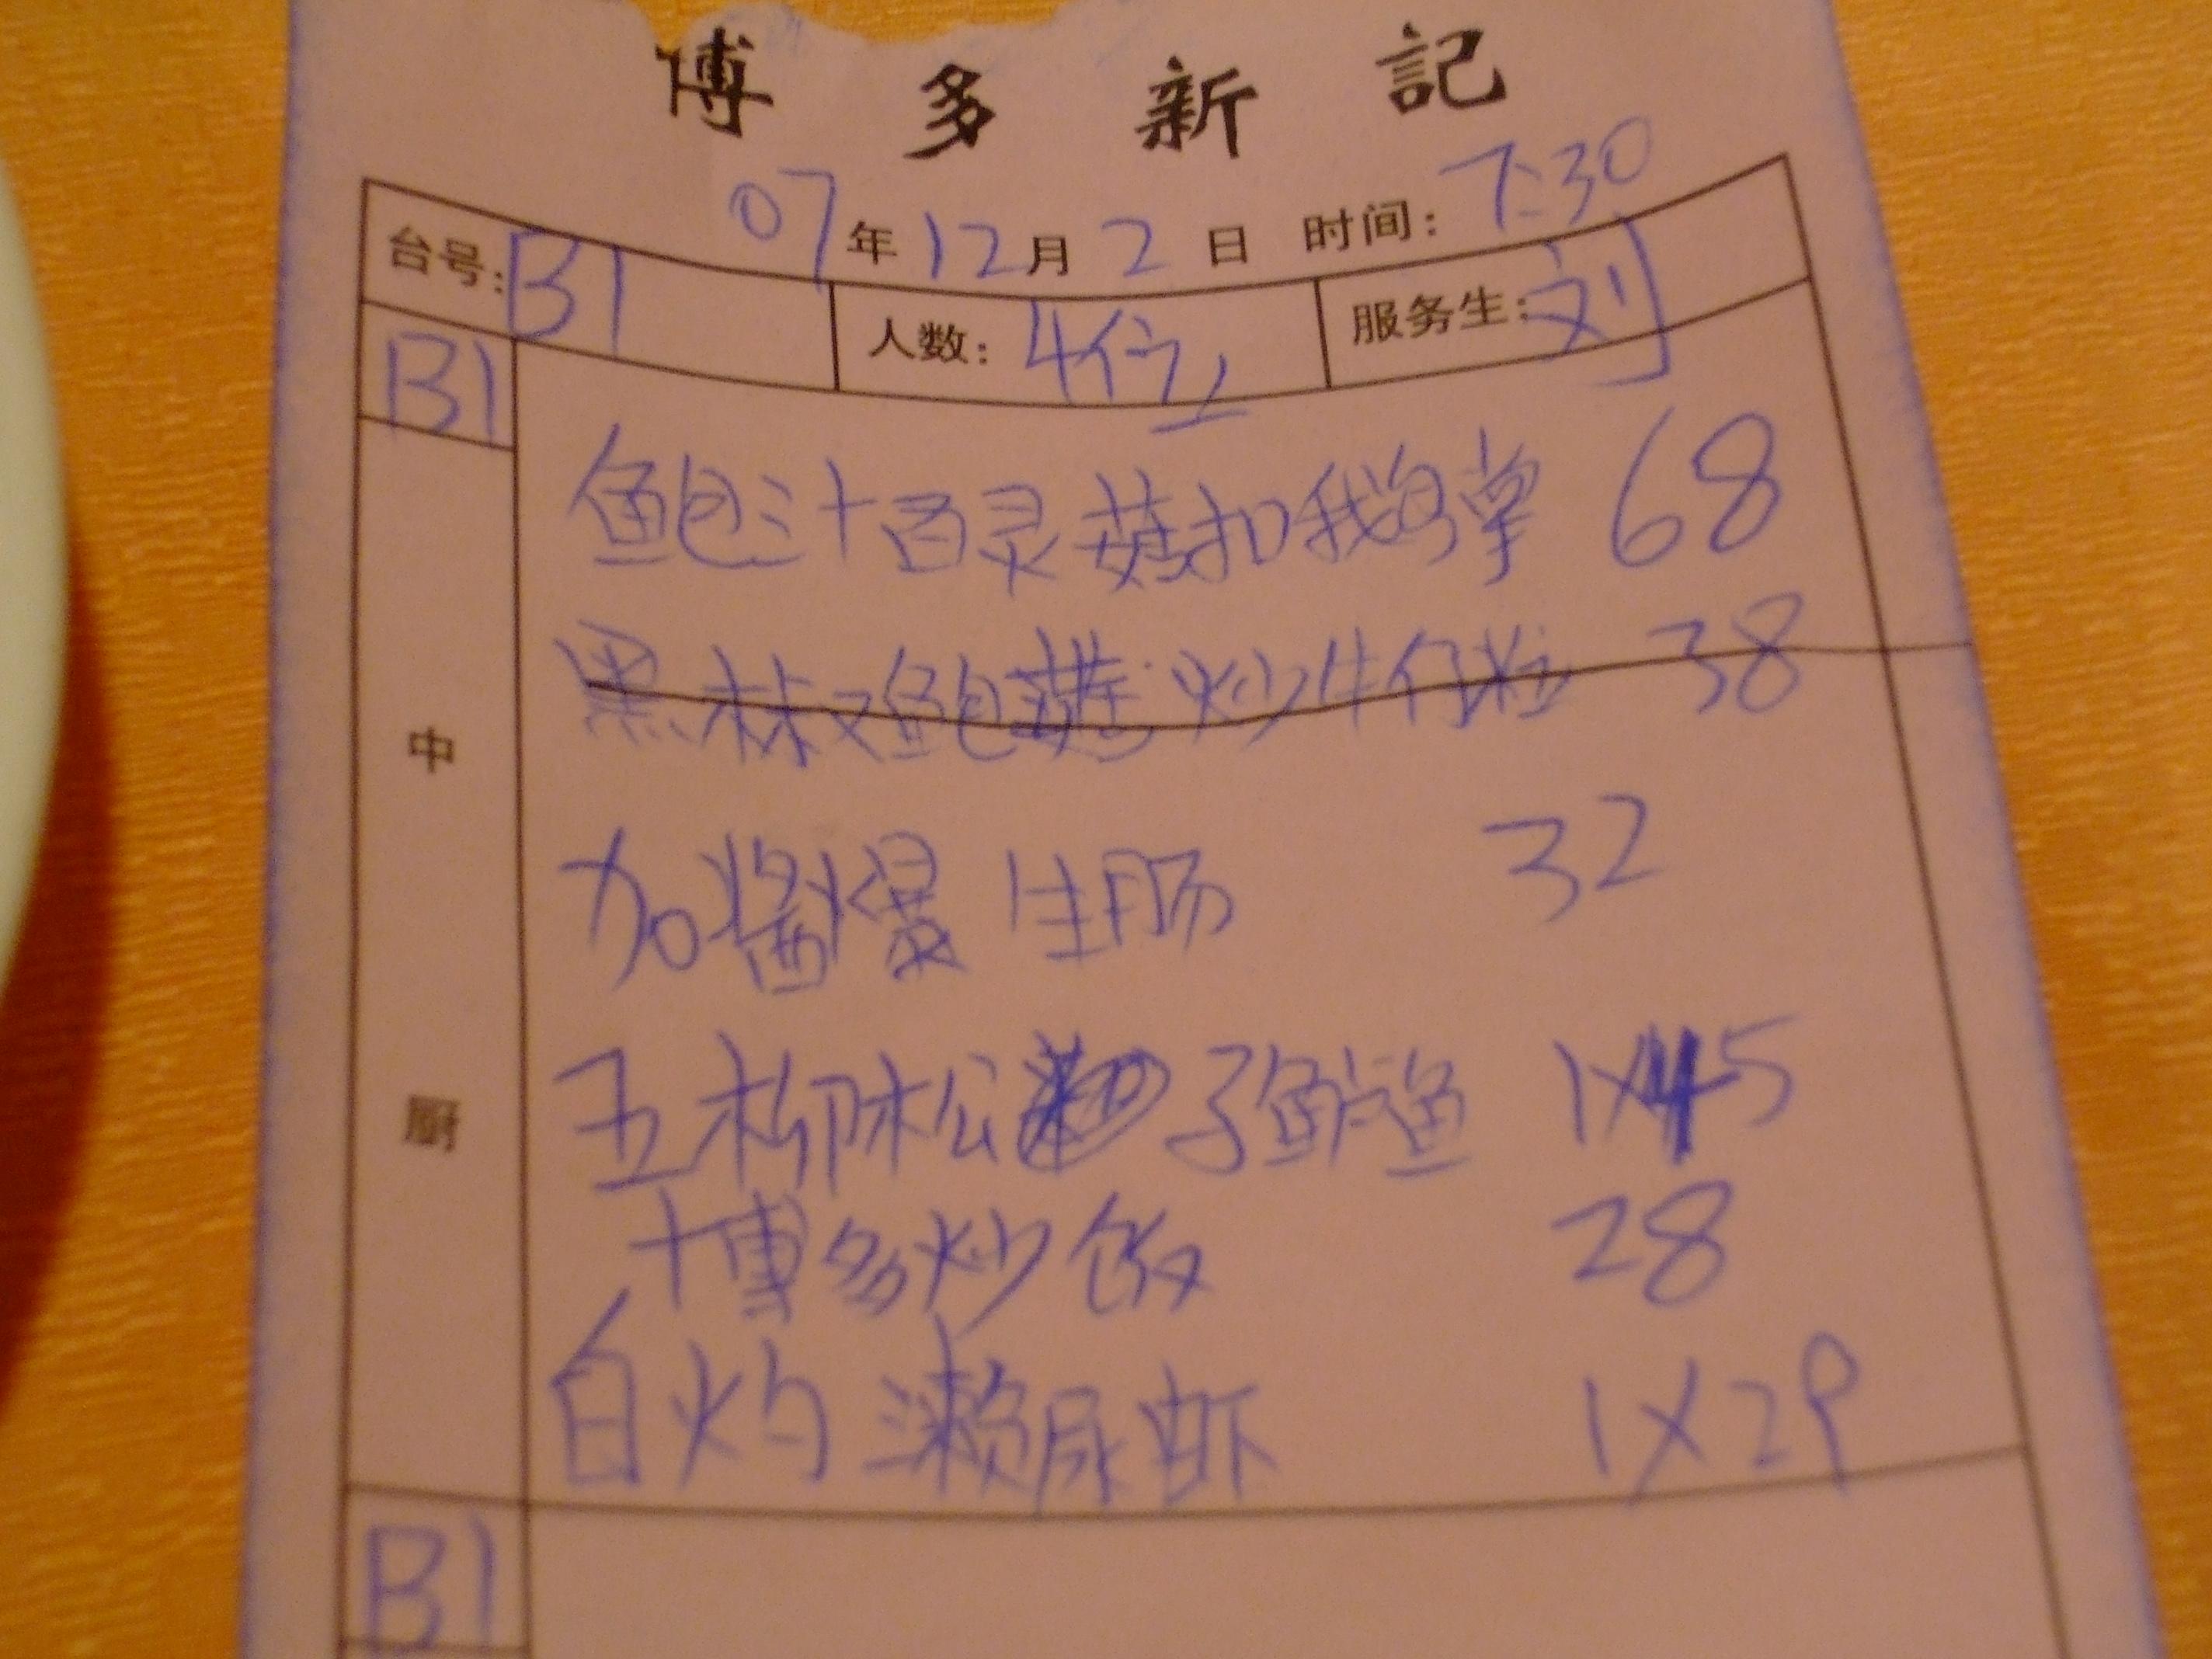 博多新記
07年12月2日 时间:7:30
台号:B1 人数:4位 服务生:刘
B1
鲍汁百灵菇扣我鸟掌 68
黑椒鲍菇炒牛仔粒 38
加酱爆生肠 32
中
五柳松子鲈鱼 1X45
厨
博多炒饭 28
白灼濑尿虾 1X29
B1